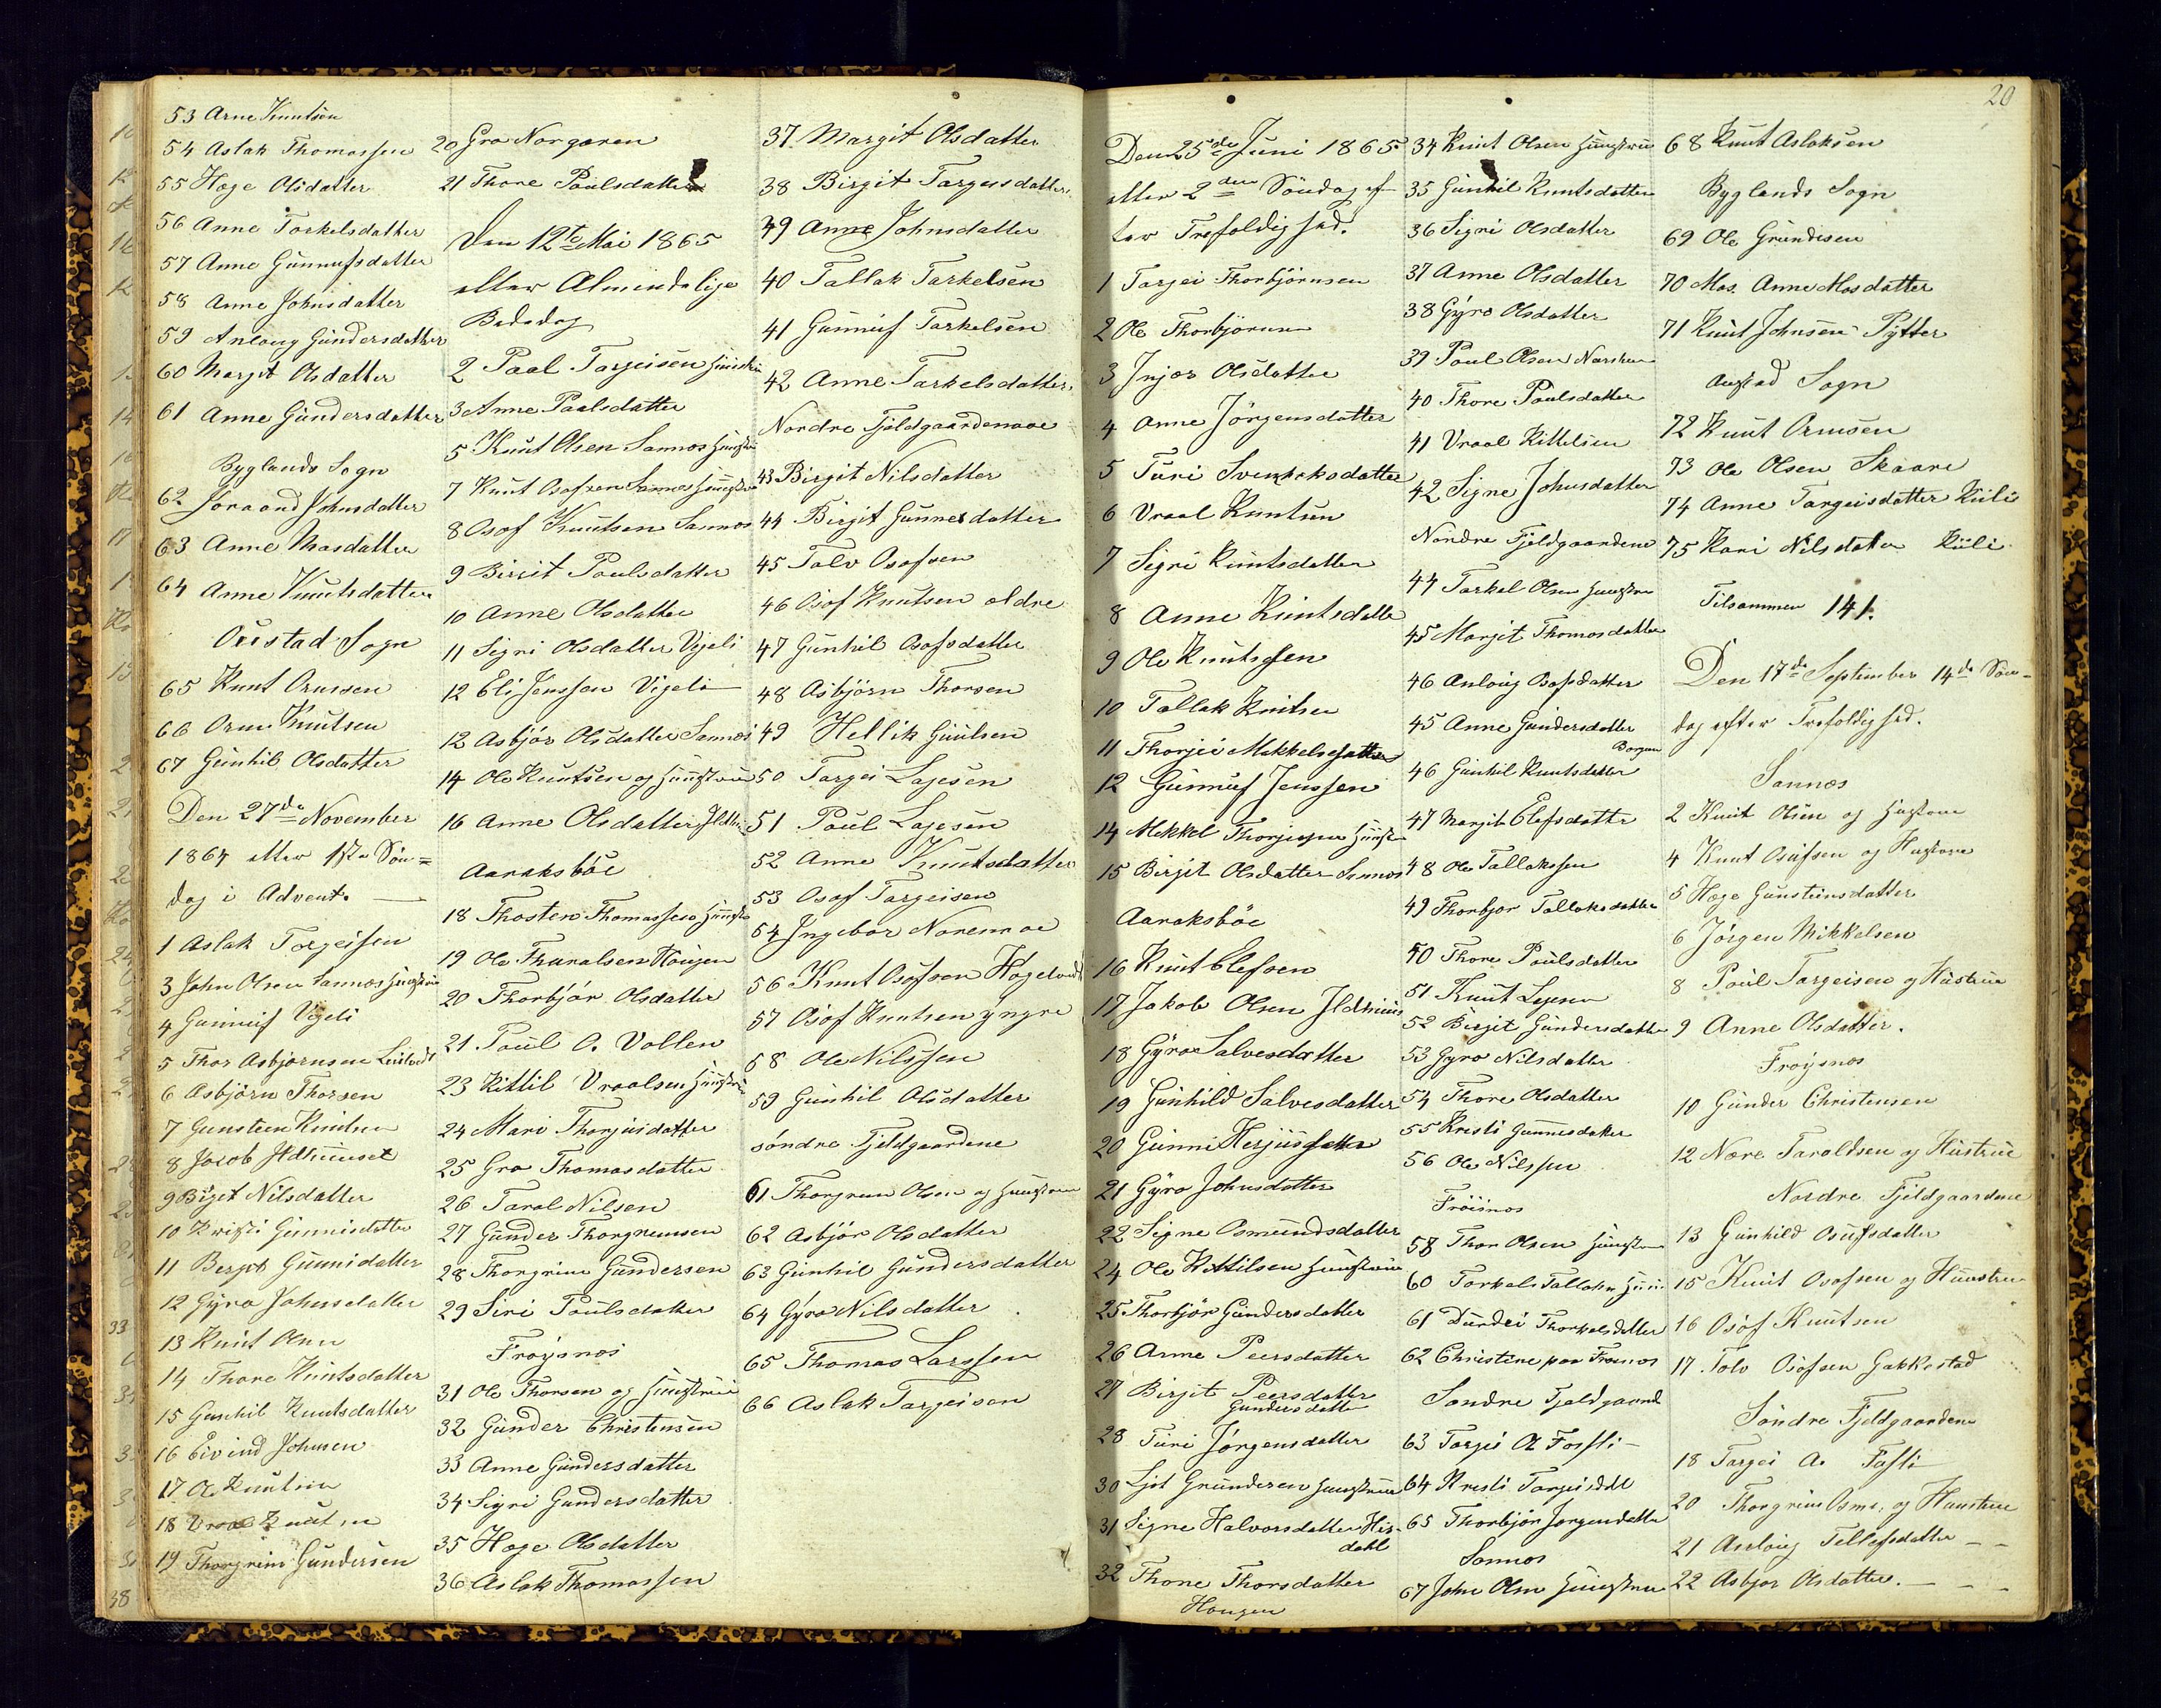 53 Arne Knutsen
54 Aslak Thomassen
55 Hæge Olsdatter
56 Anne Torkelsdatter
57 Anne Gunnufsdatter
58 Anne Johnsdatter
59 Anlaug Gundersdatter
60 Margit Olsdatter
61 Anne Gundersdatter
Byglands Sogn
62 Joraand Johnsdatter
63 Anne Masdatter
64 Anne Knutsdatter
Oustad Sogn
65 Knut Ormsen
66 Orm Knutsen
67 Gunhil Olsdatter
Den 27de November
1864 etter 1ste Søn=
dag i Advent.
1 Aslak Torgeisen
3 John Olsen Sannes Hunstru
4 Gunnuf Vigeli
5 Thor Asbjørnsen
6 Asbjørn Thorsen
7 Gunsteen Knutsen
8 Jacob Ildhuuset
9 Birgit Nilsdatter
10 Kristi Gunnisdatter
11 Bergit Gunnidatter
12 Gyro Johnsdatter
13 Knut Olsen
14 Thore Knutsdatter
15 Gunhil Knutsdatter
16 Eivind Johnsen
17 Ole Knutsen
18 Vraal Knutsen
19 Thorgrim Gundersen
20 Gro Norgaren
21 Thore Paulsdatter
Den 12te Mai 1865
etter Almindelige
Bededag
2 Paal Targeisen Hunstru
3 Anne Paalsdatter
5 Knut Olsen Sannes Hunstru
7 Knut Osofsen Sannes Hunstru
8 Osof Knutsen Sannes
9 Birgit Paulsdatter
10 Anne Olsdatter
11 Sigri Olsdatter Vigeli
12 Eli Jenssen Vigeli
12 Asbjør Olsdatter Sannes
14 Ole Knutsen og Hunstrue
16 Anne Olsdatter
Aaraksbøe
18 Thosten Thomassen Hunstru
19 Ole Tharalsen Haugen
20 Thorbjør Olsdatter
21 Paul O. Vollen
23 Kittil Vraalsen Hunstru
24 Mari Thorjusdatter
25 Gro Thomasdatter
26 Taral Nilsen
27 Gunder Thorgrimsen
28 Thorgrim Gundersen
29 Siri Paulsdatter
Frøysnes
31 Ole Thorsen og Hunstrue
32 Gunder Christensen
33 Anne Gundersdatter
34 Sigri Gundersdatter
35 Hæge Olsdatter
36 Aslak Thomassen
37 Margit Olsdatter
38 Birgit Targeisdatter
39 Anne Johnsdatter
40 Tallak Tarkelsen
41 Gunnuf Tarkelsen
42 Anne Tarkelsdatter
Nordre Fjeldgaardenaae
43 Birgit Nilsdatter
44 Birgit Gunnesdatter
45 Talv Osofsen
46 Osof Knutsen eldre
47 Gunhil Osofsdatter
48 Asbjørn Thorsen
49 Hellik Guulsen
50 Targei Lajesen
51 Paul Lajesen
52 Anne Knutsdatter
53 Osof Targeisen
54 Ingebor Noremoe
56 Knut Osofsen Hageland
57 Osof Knutsen yngre
58 Ole Nilssen
59 Gunhil Olsdatter
søndre Fjeldgaardene
61 Thorgrim Olsen og Hunstru
62 Asbjør Olsdatter
63 Gunhil Gundersdatter
64 Gyro Nilsdatter
65 Thomas Larssen
66 Aslak Targeisen
Den 25de Juni 1865
etter 2den Søndag ef
ter Trefoldighed.
1 Targei Thorbjørnsen
2 Ole Thorbjørnsen
3 Injer Olsdatter
4 Anne Jørgensdatter
5 Turi Svenkeksdatter
6 Vraal Knutsen
7 Sigri Knutsdatter
8 Anne Knutsdatter
9 Ole Knutssen
10 Tallak Knutsen
11 Thorjei Mikkelsdatter
12 Gunnuf Jenssen
14 Mekkel Thorjussen Hunstr
15 Birgit Olsdatter Sannes
Aaraksbøe
16 Knut Elefsen
17 Jakob Olsen Ildhuus
18 Gyro Salvesdatter
19 Gunhild Salvesdatter
20 Gunni Herjusdatter
21 Gyro Johnsdatter
22 Signe Osmundsdatter
24 Ole Kittilsen Hunstrue
25 Thorbjør Gundersdatter
26 Anne Peersdatter
27 Birgit Peersdatter
Gundersdatter
28 Turi Jørgensdatter
30 Ljot Grundesen Hunstrue
31 Signe Halvorsdatter His-
dahl
32 Thone Thorsdatter
Haugen
34 Knut Olsen Hunstrue
35 Gunhil Knutsdatter
36 Sigri Olsdatter
37 Anne Olsdatter
38 Gyro Olsdatter
39 Paul Olsen
40 Thore Paulsdatter
41 Vraal Kittelsen
42 Signe Johnsdatter
Nordre Fjeldgaardene
44 Tarkel Olsen Hunstru
45 Margit Thomasdatter
46 Anlaug Osofsdatter
45 Anne Gundersdatter
Borgen
46 Gunhil Knutsdatter
47 Margit Elefsdatter
48 Ole Tallakssen
49 Thorbjør Tallaksdatter
50 Thore Paulsdatter
51 Knut Lejesen
52 Birgit Gundersdatter
53 Gyro Nilsdatter
54 Thore Olsdatter
55 Kristi Gunnesdatter
56 Ole Nilssen
Frøisnes
58 Thor Olsen Hunstru
60 Torkels Tallaksen
61 Durdei Thorkelsdatter
62 Christine paa Frøsnes
Søndre Fjeldgaard
63 Targei O. Fossli
64 Kristi Targeisdtt
65 Thorbjør Jørgendatter
Sannes
67 John Olsen Hunstrue
20
68 Knut Aslaksen
Byglands Sogn
69 Ole Grundesen
70 Mas. Anne Masdatter
71 Knut Johnsen Pytter
Austad Sogn
72 Knut Ormsen
73 Ole Olsen Skaare
74 Anne Targeisdatter Kuli
75 Kari Nilsdatter Kuli
Tilsammen 141.
Den 17de September 14de Søn-
dag efter Trefoldighed.
Sannes
2 Knut Olsen og Hustrue
4 Knut Osufsen og Hustrue
5 Hæge Gunsteinsdatter
6 Jørgen Mikkelsen
8 Paul Targeisen og Hustrue
9 Anne Olsdatter.
Frøysnes
10 Gunder Christensen
12 Nere Taraldsen og Hustrue
Nordre Fjeldgaardene
13 Gunhild Osufsdatter
15 Knut Osofsen og Hunstrue
16 Osof Knutsen
17 Tolv Osofsen Gakkestad
Søndre Fjeldgaardene
18 Targei A. Fosli
20 Thorgrim Osm. og Hunstrue
21 Anlaug Tellefsdatter - -
22 Asbjør Olsdatter. - - -